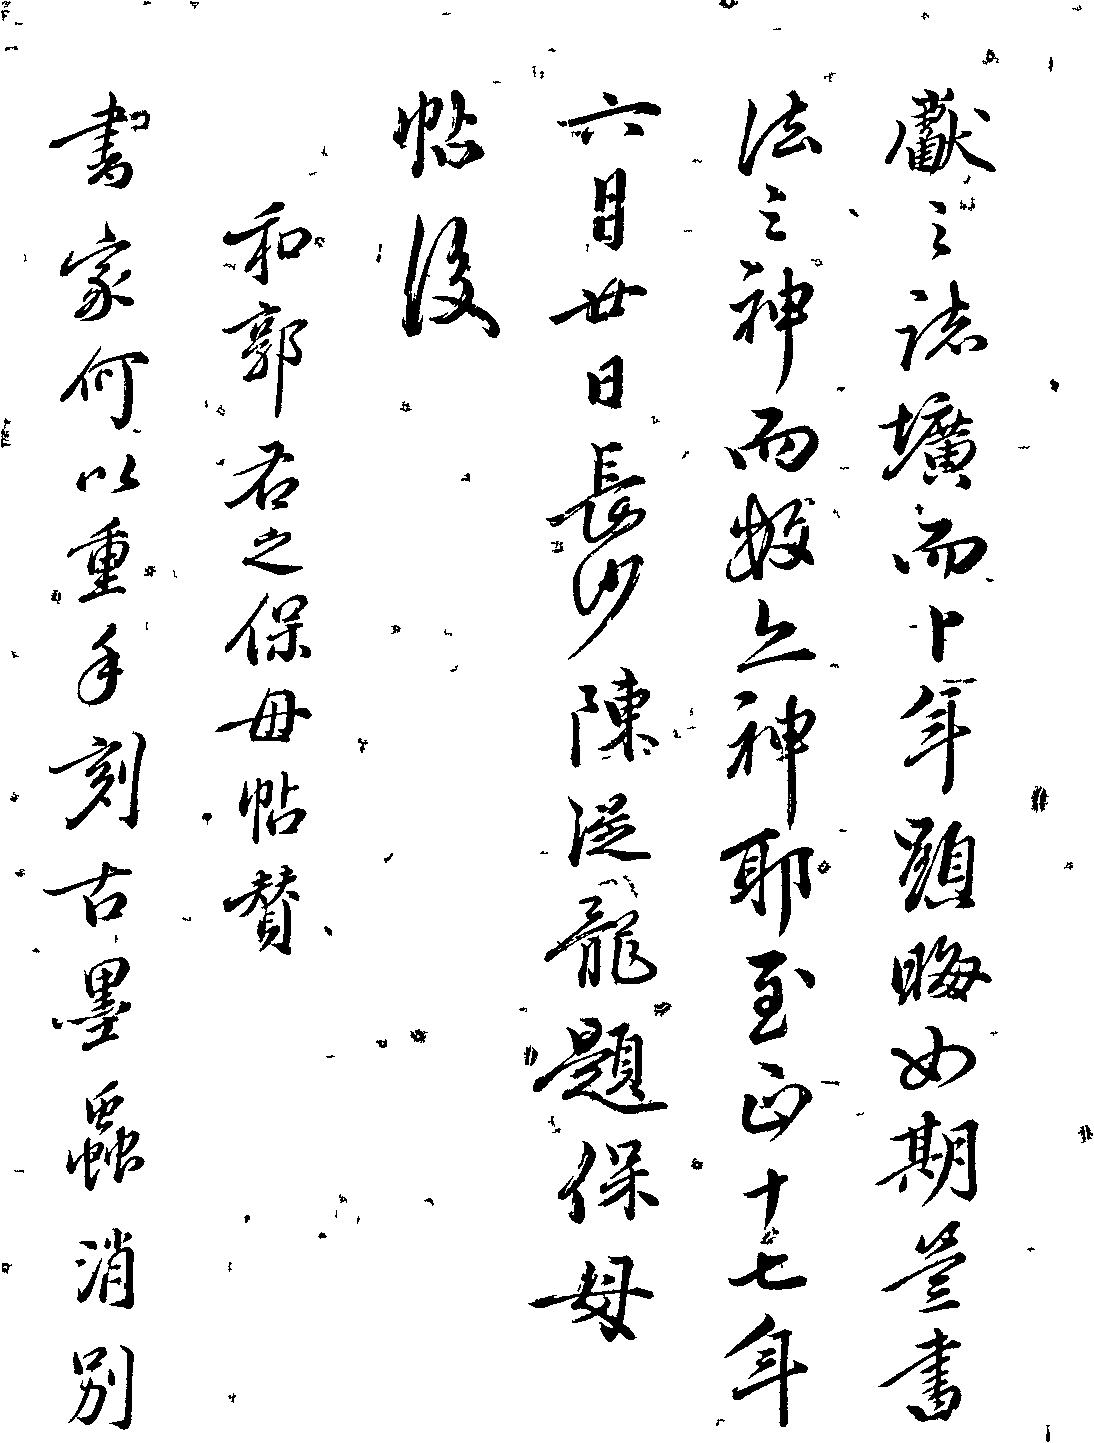 獻之誌壙而卜年顯晦如期豈書
法之神而數亦神耶至正十七年
六月廿日長沙陳從龍題保母
帖後
和郭君之保母帖賛
書家何以重手刻古墨蟲消別